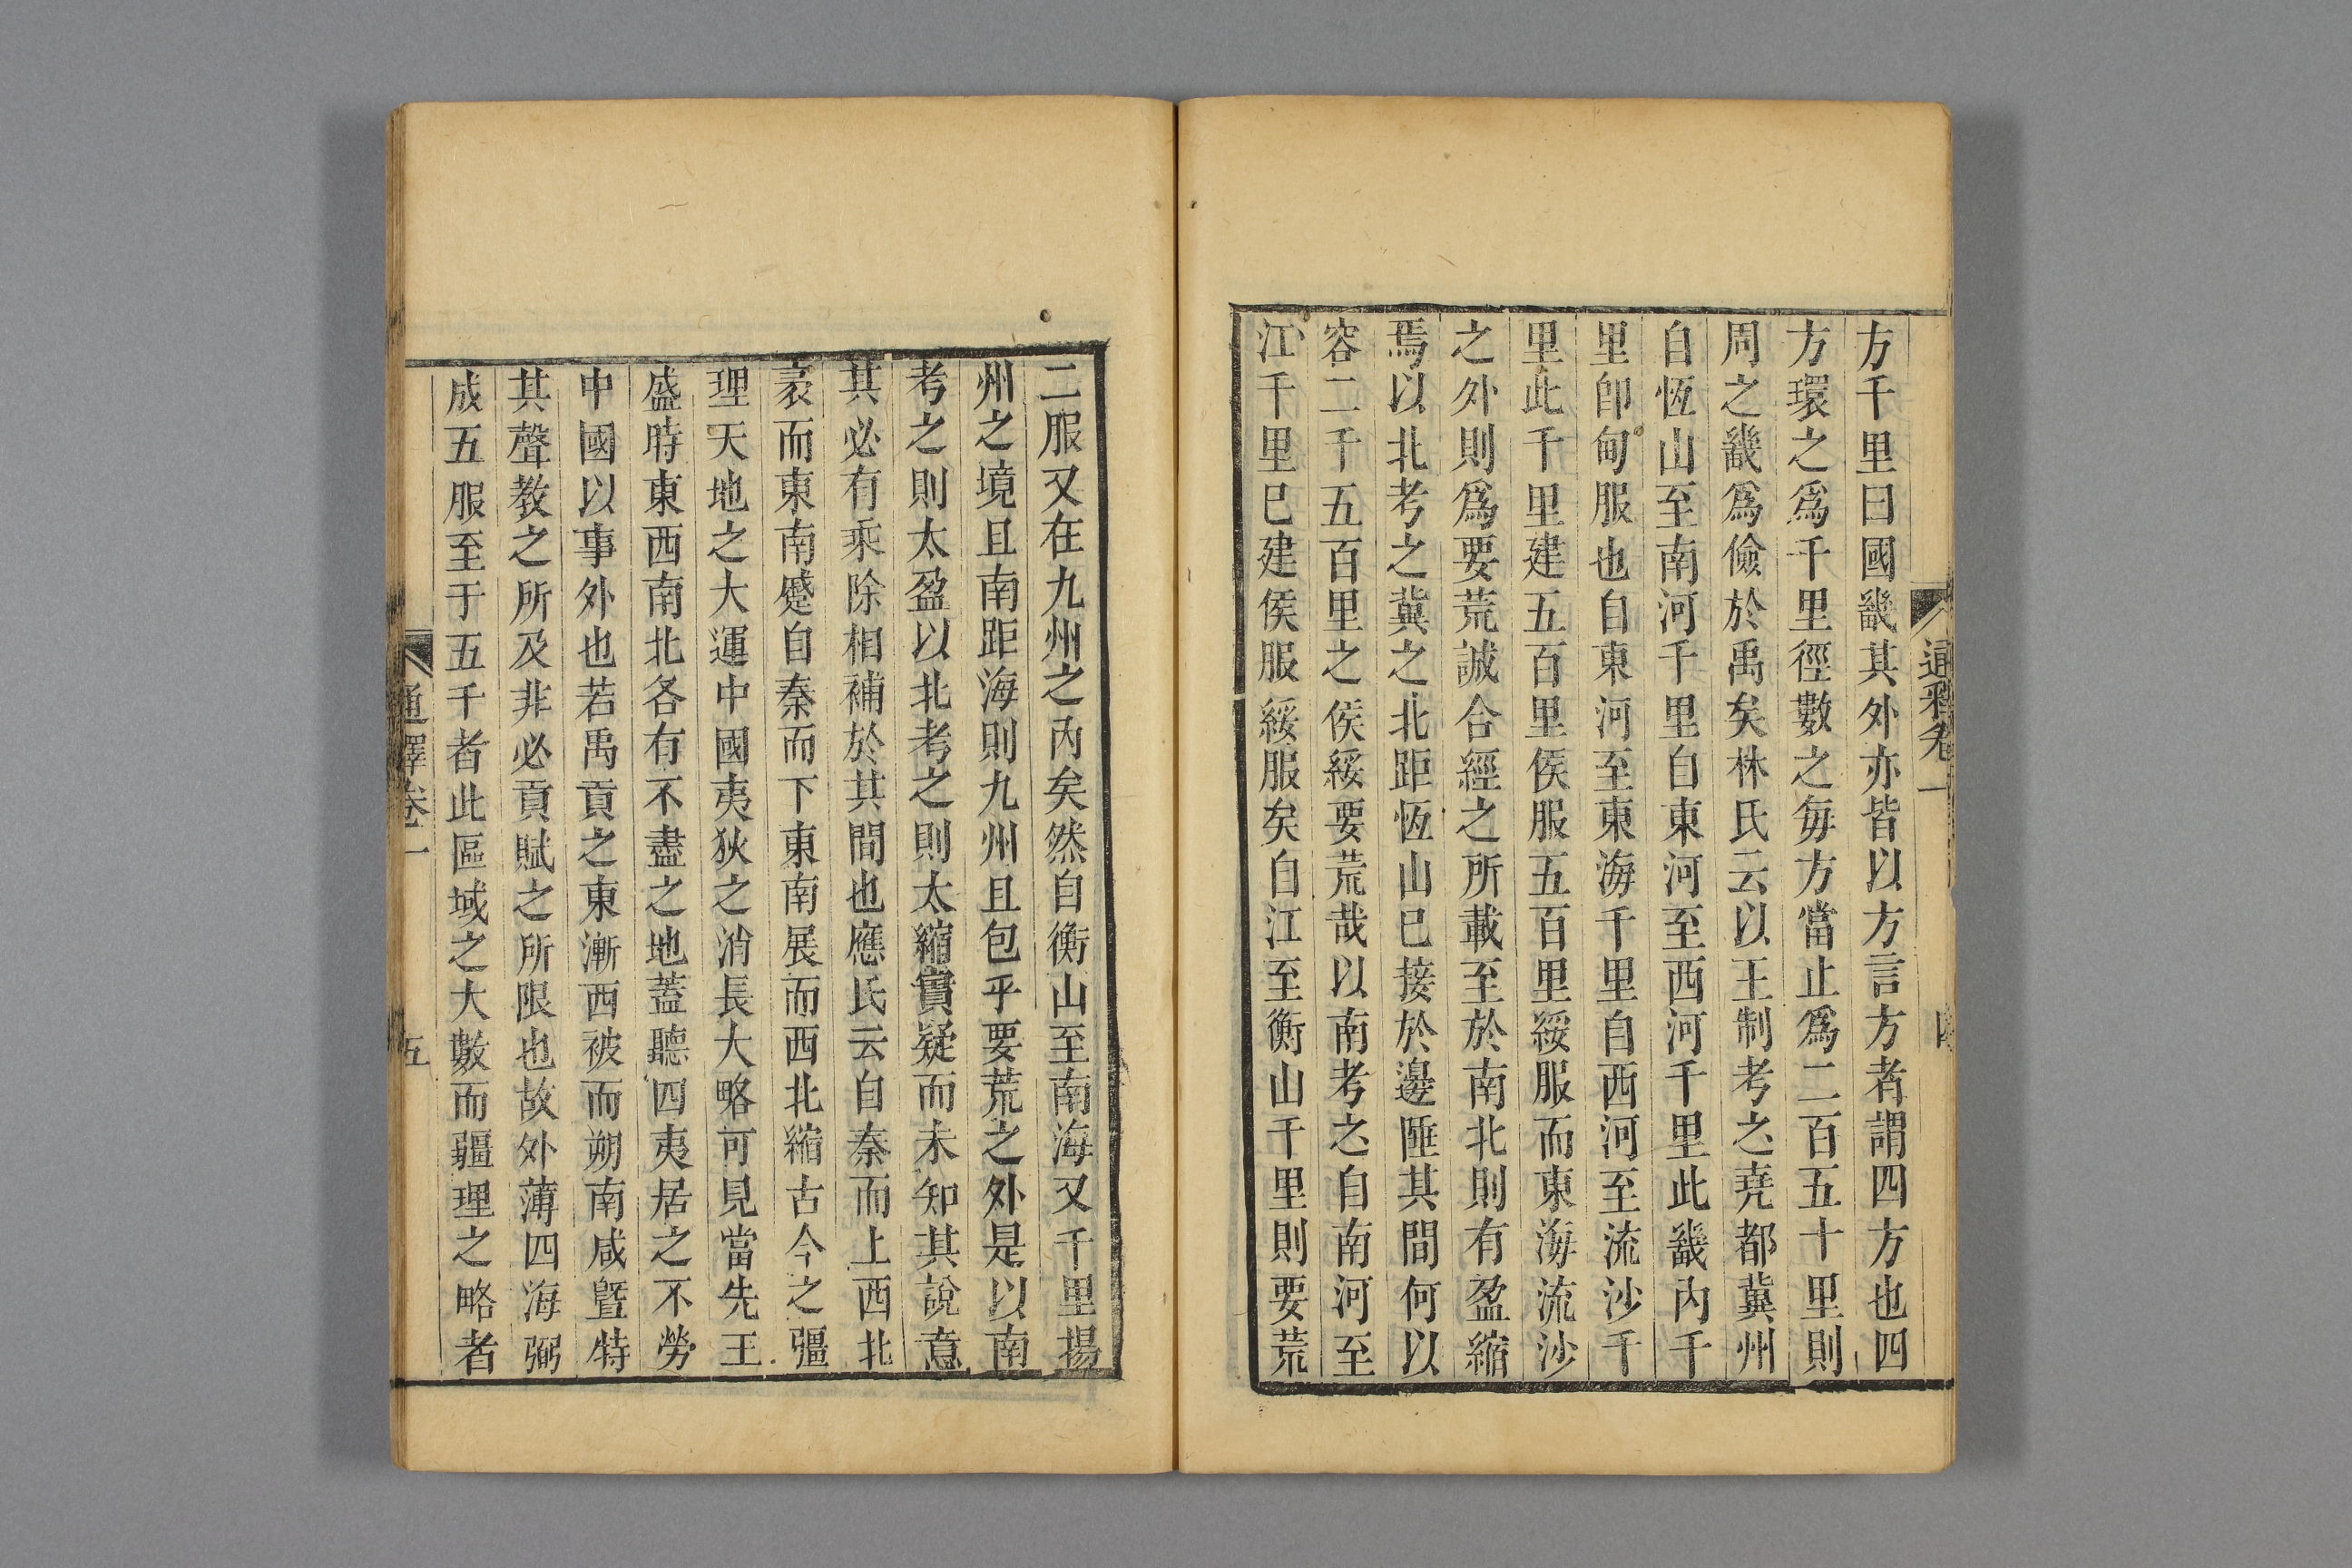 通釋卷一
方千里曰國畿其外亦皆以方言方者謂四方也四
方環之爲千里徑數之每方當止爲二百五十里則
周之畿爲儉於禹矣林氏云以王制考之堯都冀州
自恆山至南河千里自東河至西河千里此畿內千
里卽甸服也自東河至東海千里自西河至流沙千
里此千里建五百里侯服五百里綏服而東海流沙
之外則爲要荒誠合經之所載至於南北則有盈縮
焉以北考之冀之北距恆山已接於邊陲其間何以
容二千五百里之侯綏要荒哉以南考之自南河至
江千里已建侯服綏服矣自江至衡山千里則要荒
二服又在九州之內矣然自衡山至南海又千里揚
州之境且南距海則九州且包乎要荒之外是以南
考之則太盈以北考之則太縮實疑而未知其說意
其必有乘除相補於其間也應氏云自秦而上西北
袤而東南蹙自秦而下東南展而西北縮古今之彊
理天地之大運中國夷狄之消長大略可見當先王
盛時東西南北各有不盡之地蓋聽四夷居之不勞
中國以事外也若禹貢之東漸西被而朔南咸曁特
其聲教之所及非必貢賦之所限也故外薄四海弼
成五服至于五千者此區域之大數而疆理之略者
通釋卷一
五